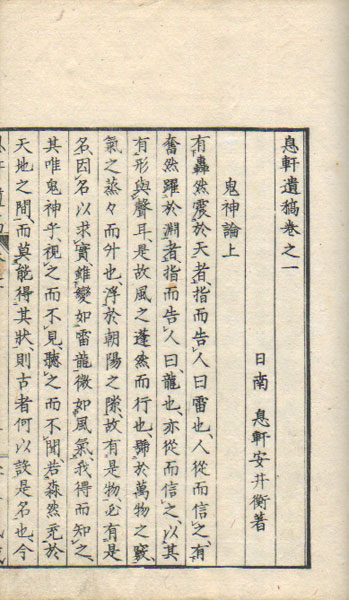 息軒遺稿卷之一
日南 息軒安井衡著
鬼神論上
有轟然震於天者、指而告人曰雷也、人從而信之、有
奮然躍於淵者、指而告人曰、龍也、亦從而信之、以其
有形與聲耳、是故風之蓬然而行也、號於萬物之竅、
氣之蒸々而升也、浮於朝陽之隙、故有是物、必有是
名、因名以求實、雖變如雷龍、微如風氣、我得而知之、
其唯鬼神乎、視之而不見、聽之而不聞、若森然充於
天地之間、而莫能得其狀、則古者何以設是名也、今